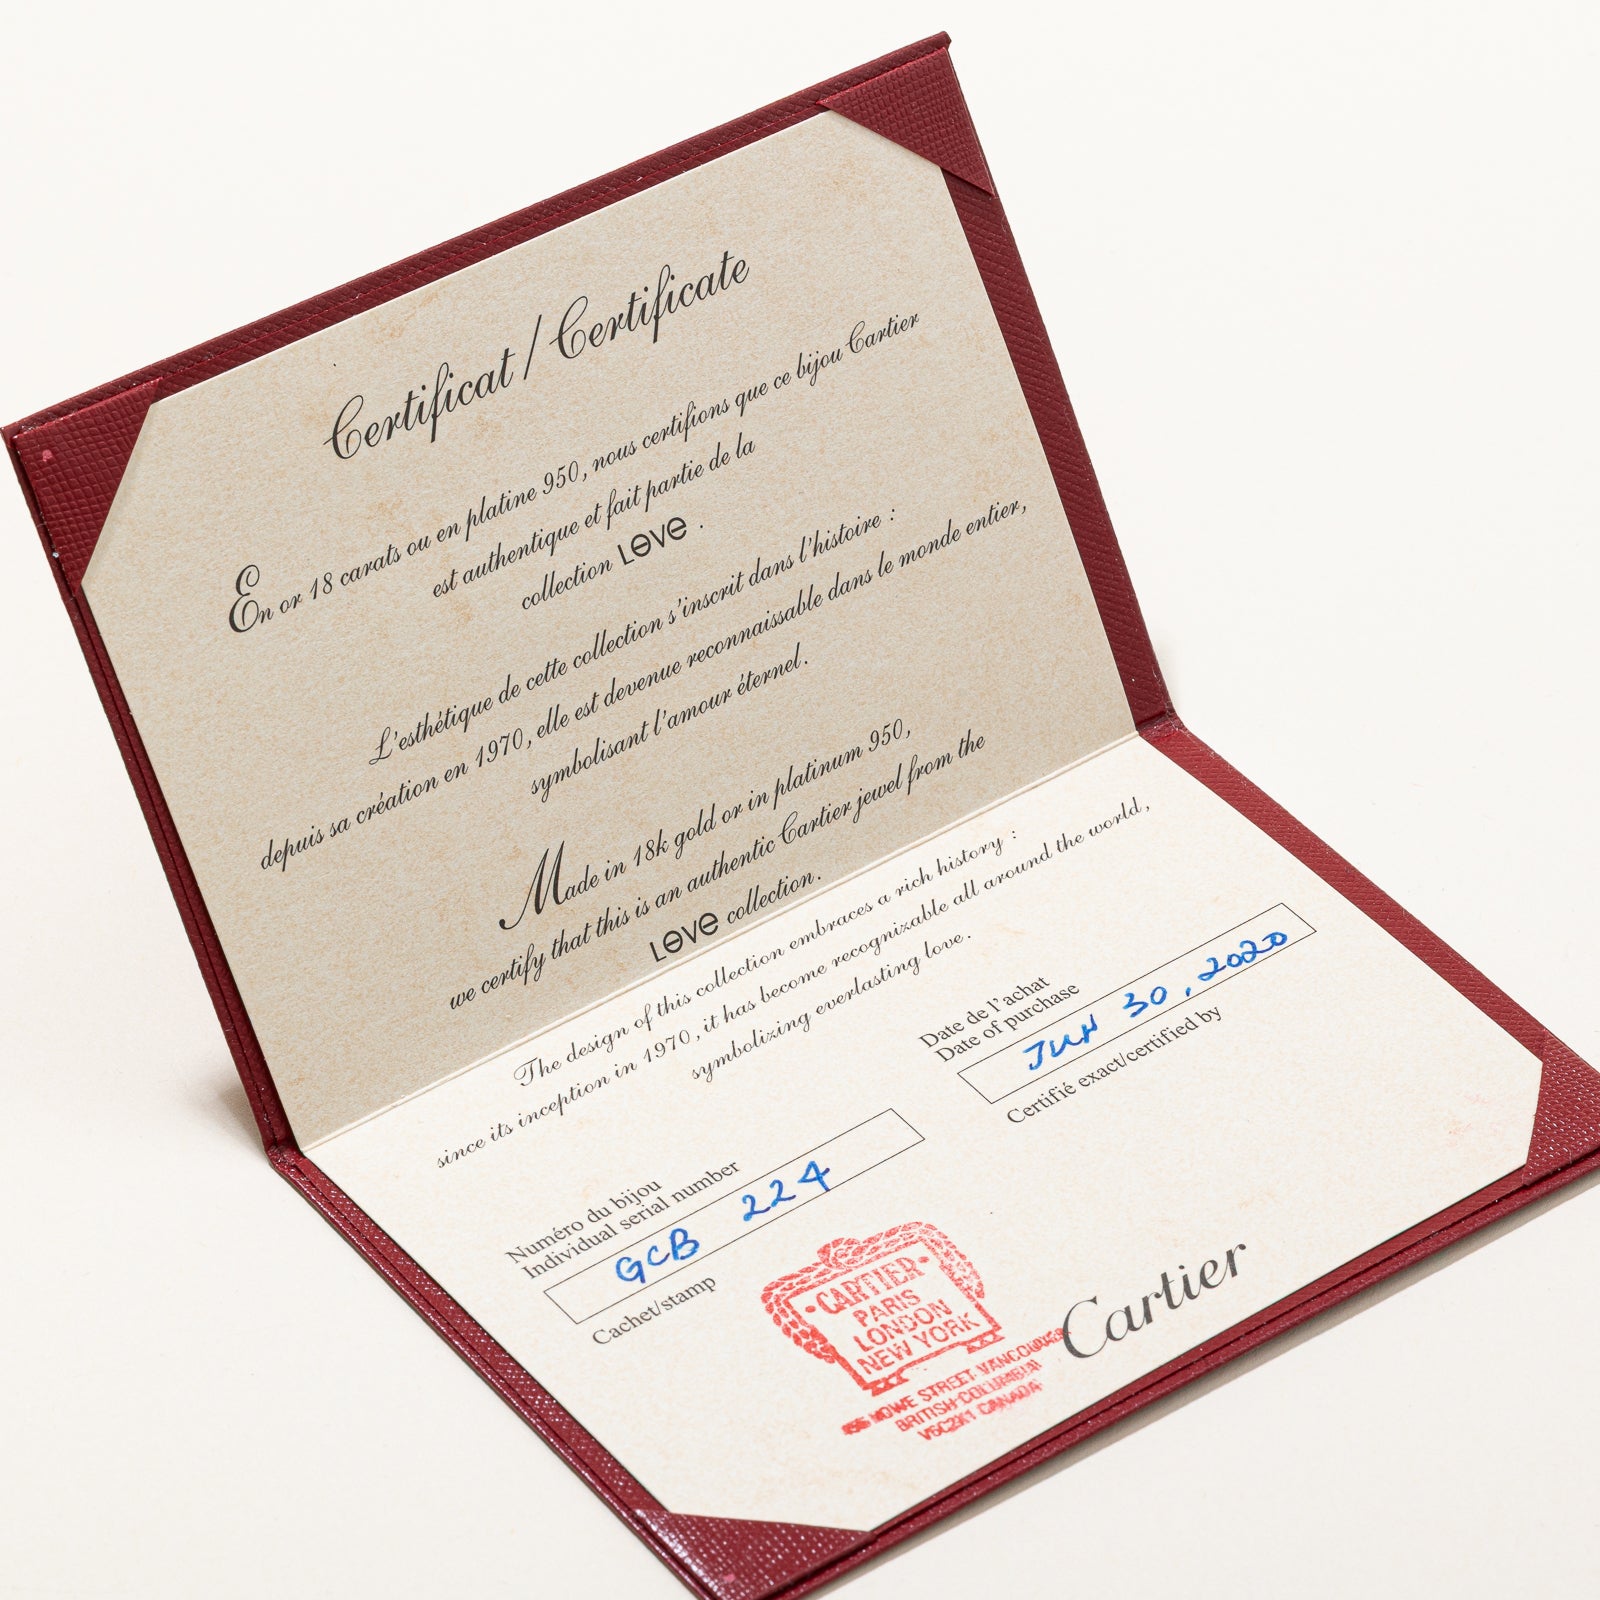 Certificat / Certificate
En or 18 carats ou en platine 950, nous certifions que ce bijou Cartier
est authentique et fait partie de la
collection LOVE .
L'esthétique de cette collection s'inscrit dans l'histoire :
depuis sa création en 1970, elle est devenue reconnaissable dans le monde entier,
symbolisant l'amour éternel.
Made in 18k gold or in platinum 950,
we certify that this is an authentic Cartier jewel from the
LOVE collection.
The design of this collection embraces a rich history :
since its inception in 1970, it has become recognizable all around the world,
symbolizing everlasting love.
Date de l'achat
Date of purchase
JUN 30, 2020
Certifié exact/certified by
Numéro du bijou
Individual serial number
GCB 224
Cachet/stamp
·CARTIER·
PARIS
LONDON
NEW YORK
STREET VANCOUVER
BRITISH COLUMBIA
V6C2X1 CANADA
Cartier